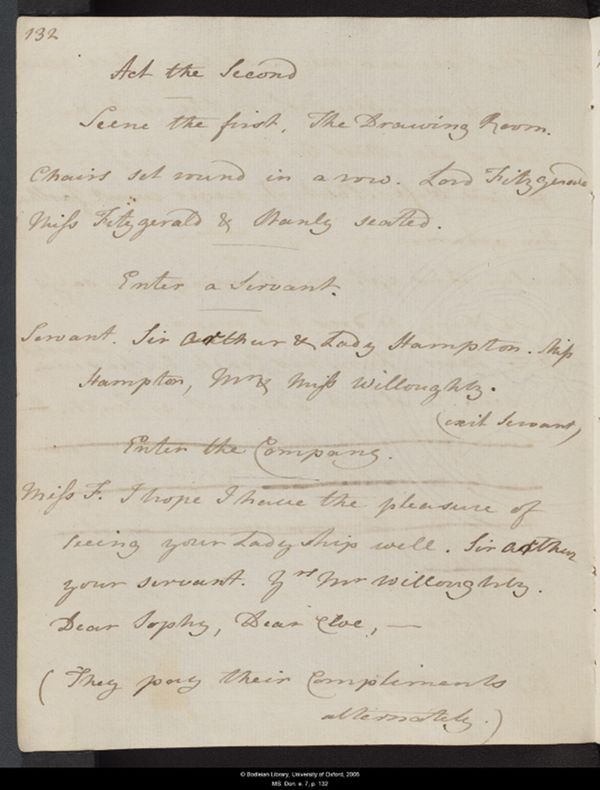 132
Act the Second
Scene the first. The Drawing Room.
Chairs set round in a row. Lord Fitzgerald
Miſs Fitzgerald & Stanly seated.
Enter a Servant.
Servant. Sir Arthur & Lady Hampton. Miſs
Hampton, Mr & Miſs Willoughby.
(exit Servant)
Enter the Company.
Miſs F. I hope I have the pleasure of
seeing your Ladyship well. Sir Arthur
your servant. Yrs Mr Willoughby.
Dear Sophy, Dear Cloe, —
(They pay their Compliments
alternately.)
© Bodleian Library, University of Oxford, 2006
MS. Don. e. 7, p. 132